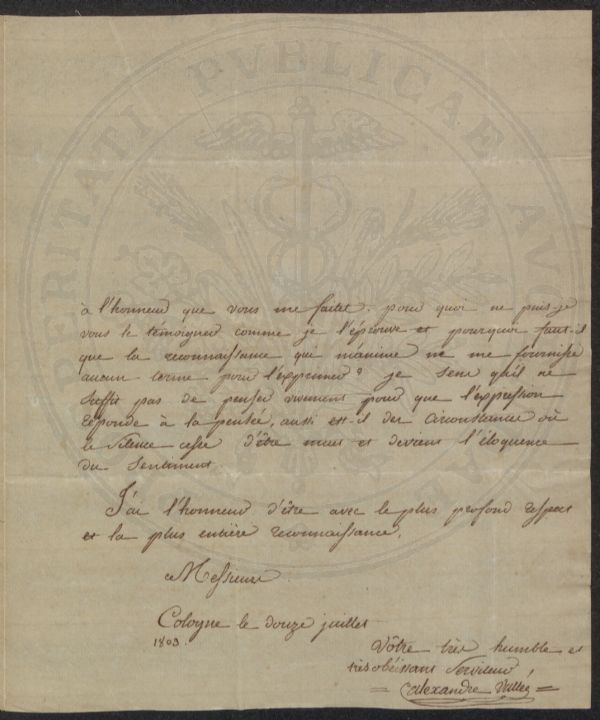 PROSPERITATI PVBLICAE AV
à l'honneur que vous me faites. pour quoi ne puis-je
vous le témoigner comme je l'éprouve et pourquoi faut-il
que la reconnaissance qui m'anime ne me fournisse
aucun terme pour l'exprimer? je sens qu'il ne
suffit pas de penser vivement pour que l'expression
réponde à la pensée, aussi est-il des circonstances où
le silence cesse d'être muet et devient l'éloquence
du sentiment
J'ai l'honneur d'être avec le plus profond respect
et la plus entière reconnaissance.
Messieurs
Cologne le douze juillet
1803.
Vôtre très humble et
très obéissant Serviteur
Alexandre